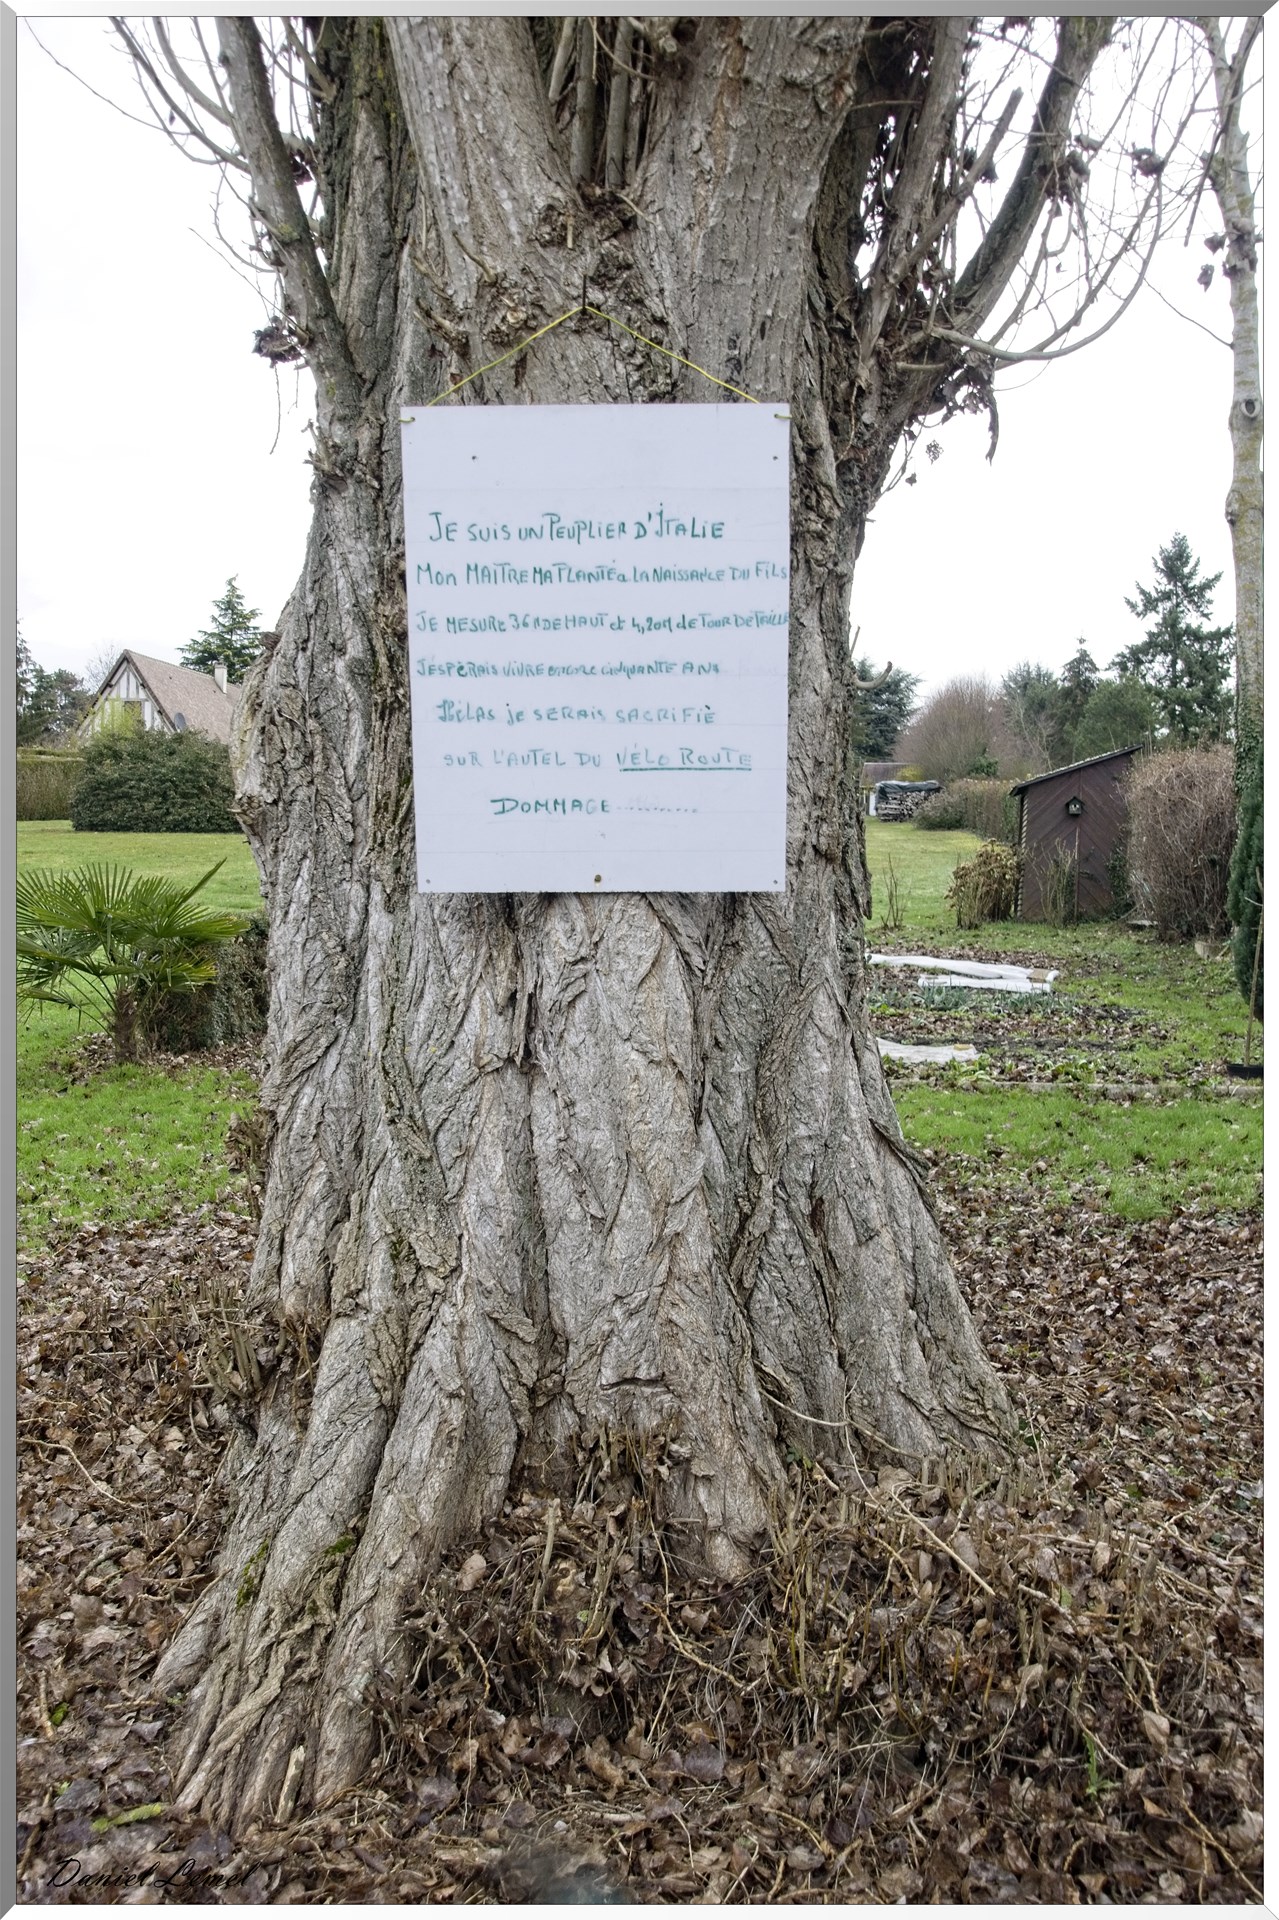 JE SUIS UN PEUPLIER D'ITALIE
MON MAITRE MA PLANTÉ a LA NAISSANCE DU FILS
JE MESURE 36M DE HAUT et 4,20M de TOUR DE TAILLE
JESPÈRAIS VIVRE encore CINQUANTE ANS
HÉLAS je SERAIS SACRIFIÉ
SUR L'AUTEL DU VÉLO ROUTE
DOMMAGE............
Daniel Lemel